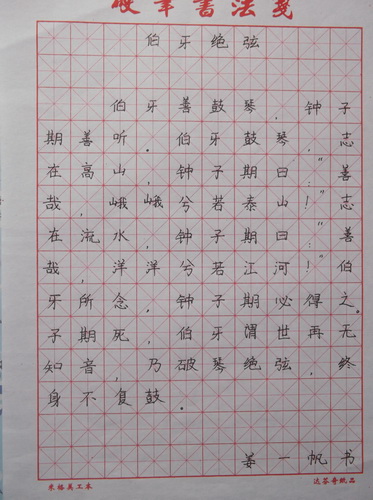 硬笔书法笺
伯牙绝弦
伯牙善鼓琴，钟子
期善听。伯牙鼓琴，志
在高山，钟子期曰：“善
哉，峨峨兮若泰山！”志
在流水，钟子期曰：“善
哉，洋洋兮若江河！”伯
牙所念，钟子期必得之。
子期死，伯牙谓世再无
知音，乃破琴绝弦，终
身不复鼓。
姜一帆书
米格美工本
达芬奇纸品